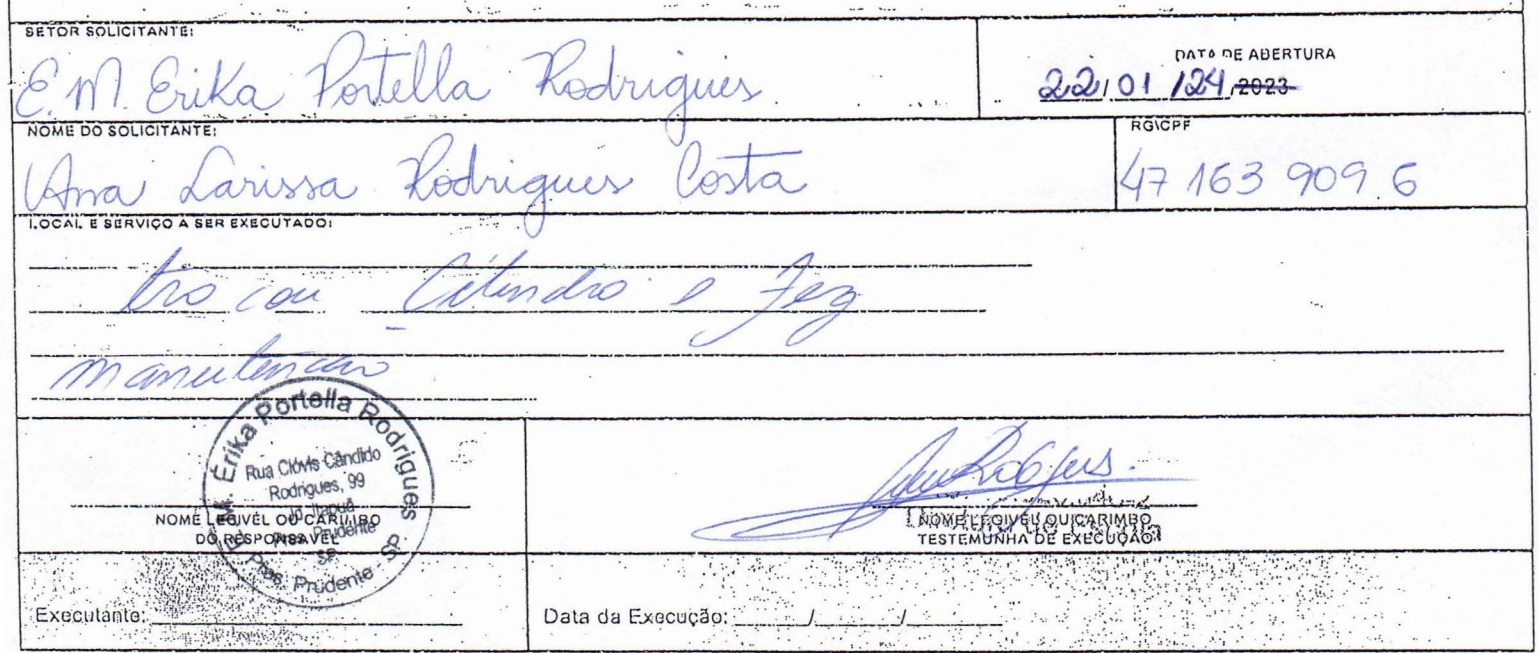 SETOR SOLICITANTE:
E.M. Erika Portella Rodrigues
DATA DE ABERTURA
22/01/24/2023
NOME DO SOLICITANTE:
Ana Larissa Rodrigues Costa
RG\CPF
47 163 909 6
LOCAL E SERVIÇO A SER EXECUTADO:
trocou Cilindro e fez
manutencao
E.M. Erika Portella Rodrigues
Rua Clóvis Cândido
Rodrigues, 99
Jd. Itapuã
Pres. Prudente
SP
Pres. Prudente - SP.
NOME LEGIVEL OU CARIMBO
DO RESPONSAVEL
NOME LEGIVEL OU CARIMBO
TESTEMUNHA DE EXECUÇÃO
Executante:
Data da Execução: / /